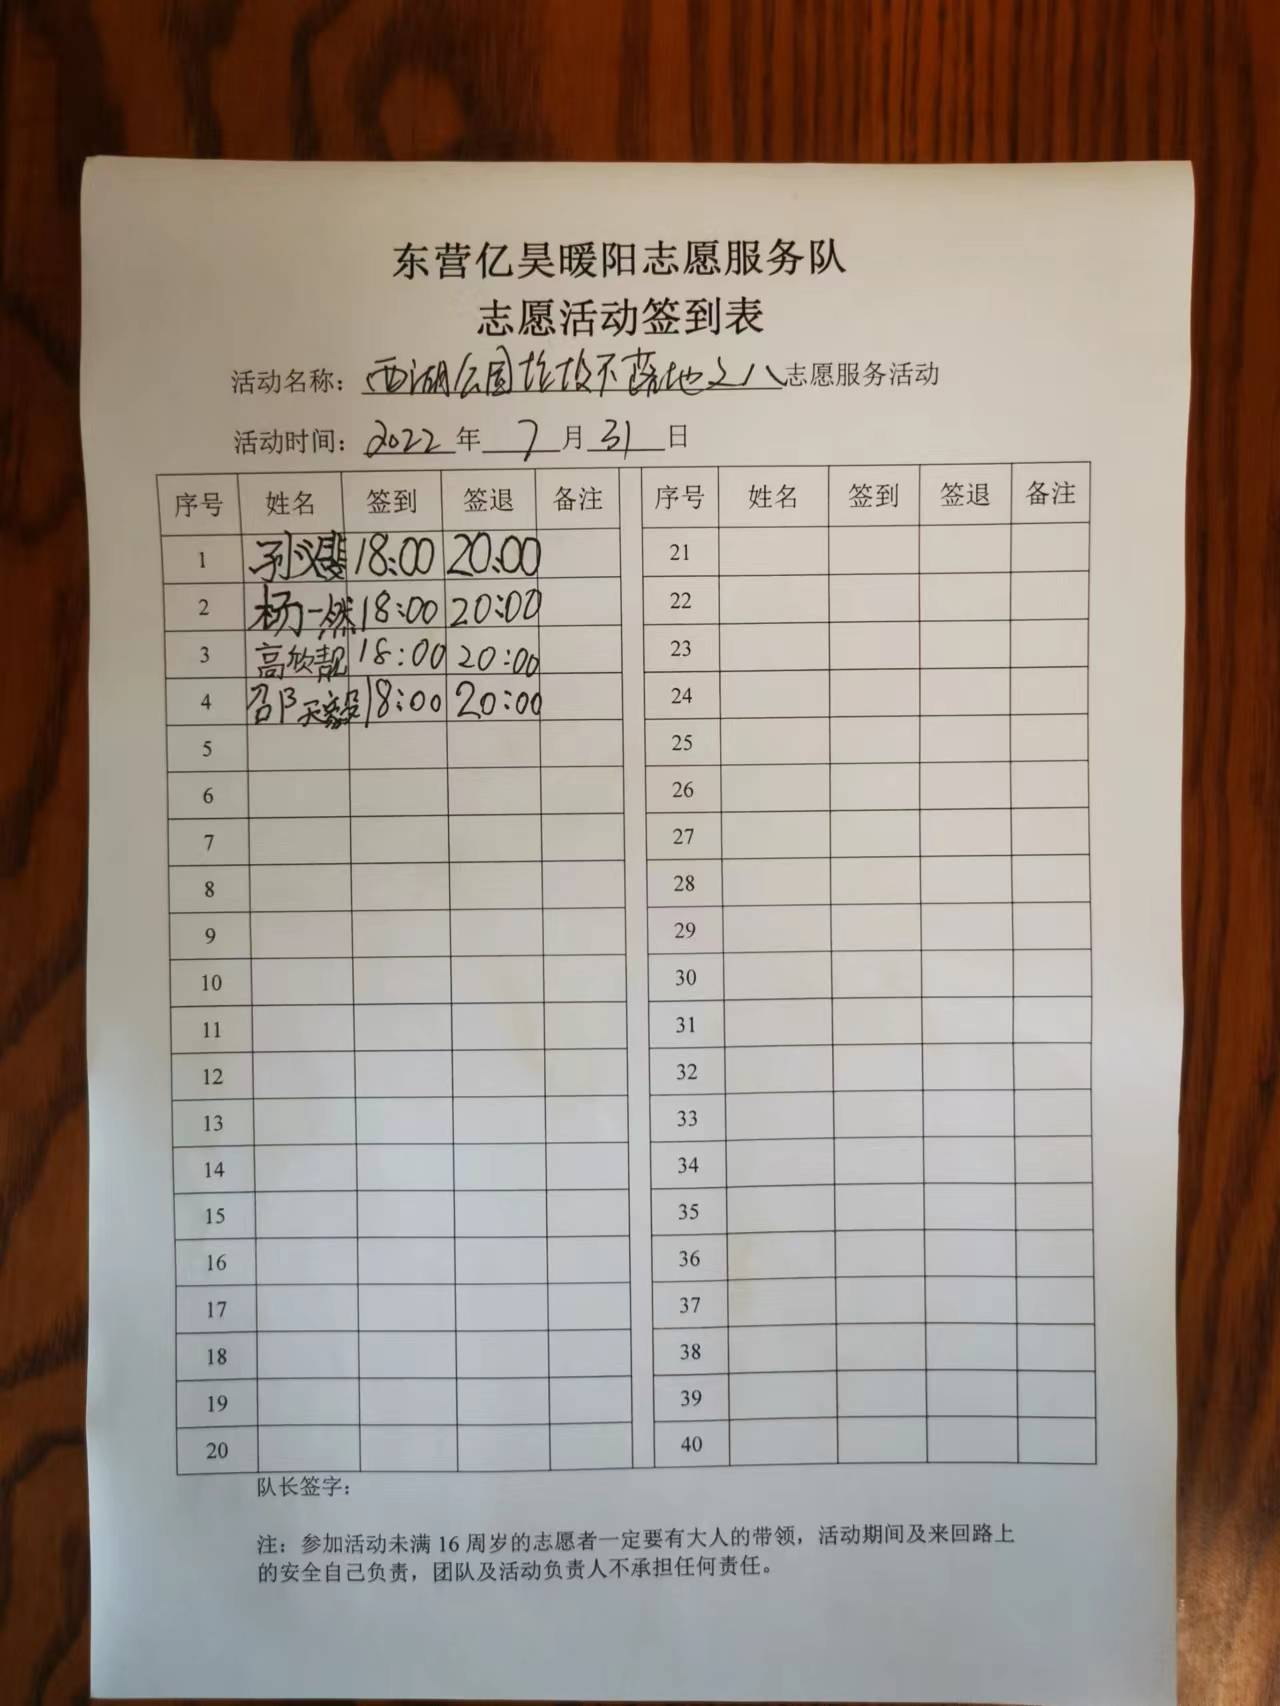 东营亿昊暖阳志愿服务队
志愿活动签到表
活动名称：西湖公园垃圾不落地之八志愿服务活动
活动时间：2022年7月31日
序号 姓名 签到 签退 备注 序号 姓名 签到 签退 备注
1 孙义斐 18:00 20:00 21
2 杨一然 18:00 20:00 22
3 高欣靓 18:00 20:00 23
4 邵天毅 18:00 20:00 24
5 25
6 26
7 27
8 28
9 29
10 30
11 31
12 32
13 33
14 34
15 35
16 36
17 37
18 38
19 39
20 40
队长签字：
注：参加活动未满16周岁的志愿者一定要有大人的带领，活动期间及来回路上
的安全自己负责，团队及活动负责人不承担任何责任。